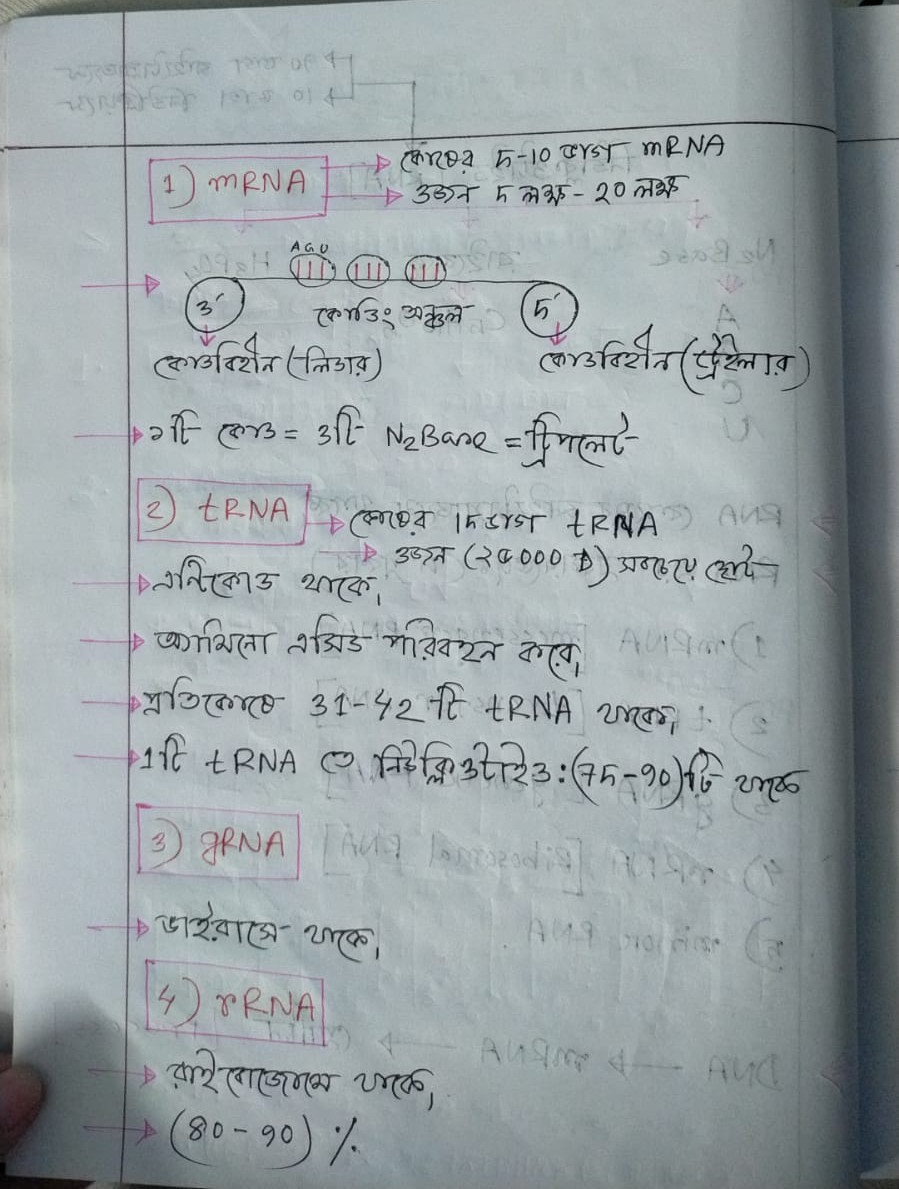 1) mRNA → কোষের ৫-10 ভাগ mRNA
→ ওজন ৫ লক্ষ - ২০ লক্ষ
A G U
3′ কোডিং অঞ্চল ৫′
কোডবিহীন (লিডার) কোডবিহীন (ট্রেইলার)
→ ১টি কোড = ৩টি N₂Base = ট্রিপলেট
2) tRNA → কোষের 1৫ভাগ tRNA
→ ওজন (২৫০০০ D) সবচেয়ে ছোট
→ এন্টিকোড থাকে।
→ অ্যামিনো এসিড পরিবহন করে।
→ প্রতিকোষে 31-42 টি tRNA থাকে।
→ 1টি tRNA তে নিউক্লিওটাইড: (7৫-90)টি থাকে
3) gRNA
→ ভাইরাসে থাকে।
4) rRNA
→ রাইবোজোমে থাকে।
→ (80-90) %.